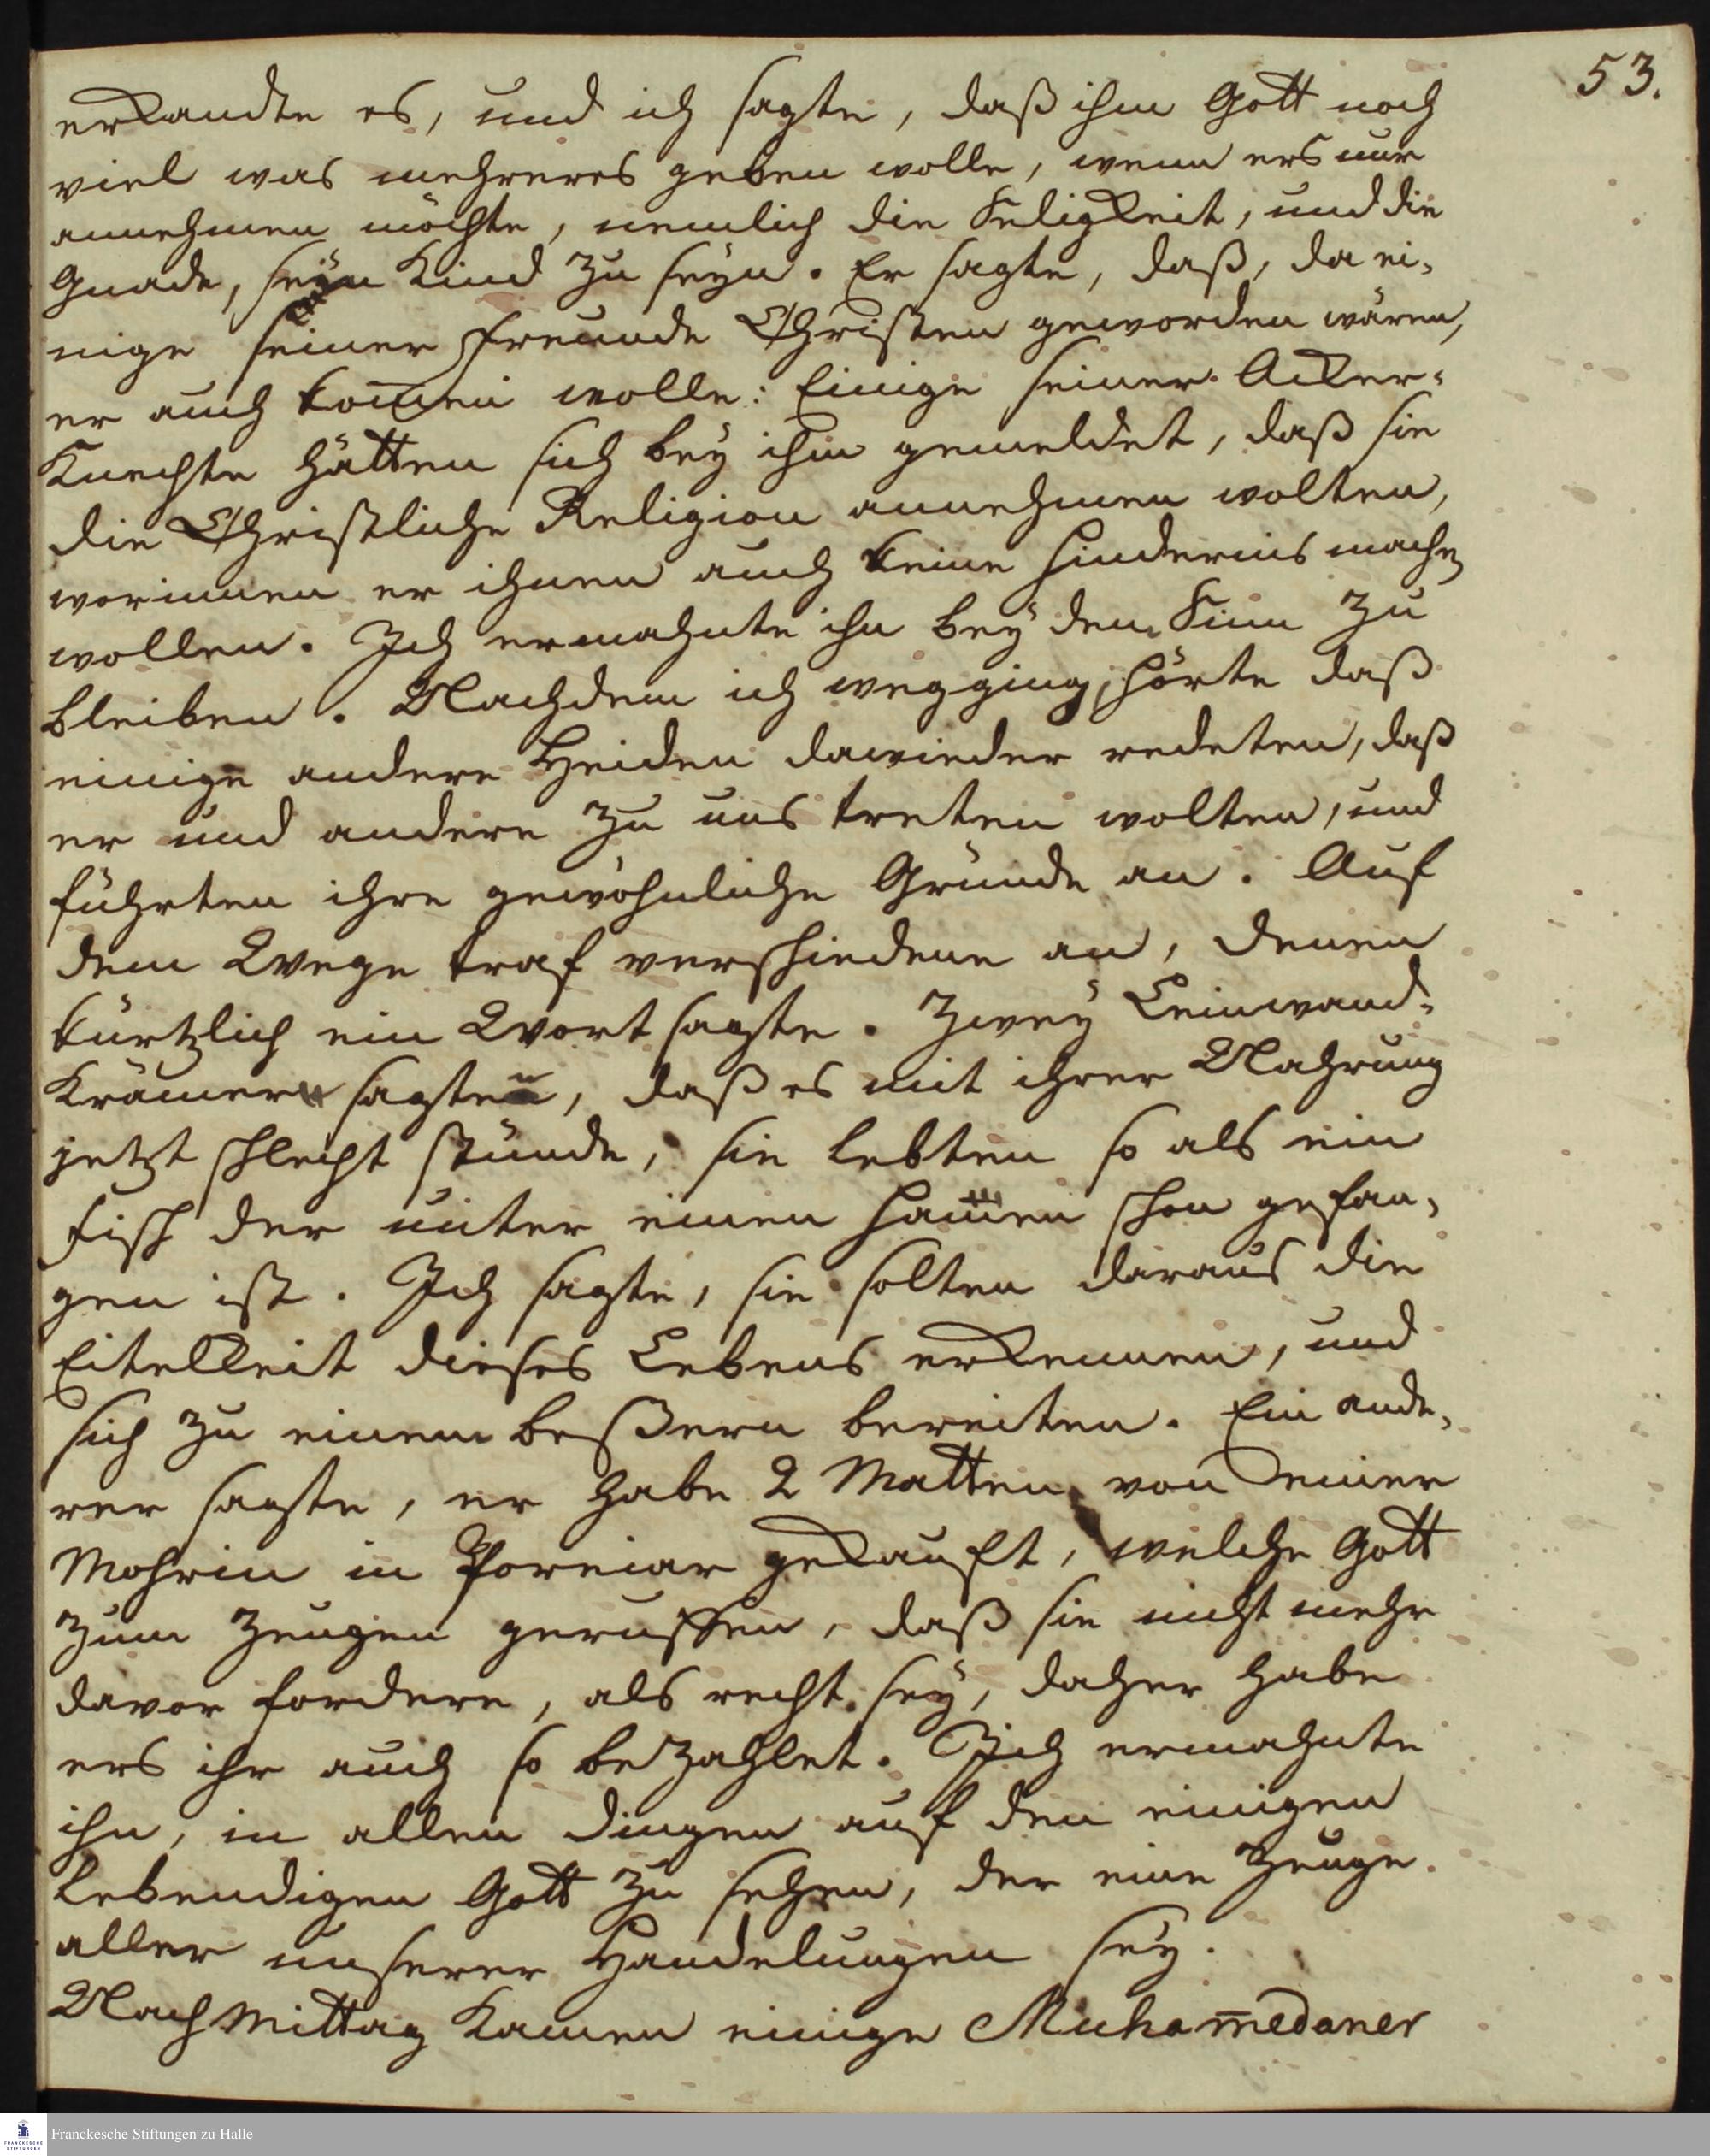 53.
erkandte es, und ich sagte, daß ihm Gott noch
viel was mehreres geben wolle, wenn ers nur
annehmen möchte, nemlich die Seligkeit, und die
Gnade, seyn Kind zu seyn. Er sagte, daß, da ei-
nige seiner Freunde Christen geworden wären,
er auch kom̄en wolle: Einige seiner Acker-
Knechte hätten sich bey ihm gemeldet, daß sie
die Christliche Religion annehmen wolten,
worinnen er ihnen auch keine Hindernis machen
wollen. Ich ermahnte ihn bey dem Sinn zu
bleiben. Nachdem ich wegging, hörte daß
einige andere Heiden dawieder redeten, daß
er und andere zu uns treten wolten, und
führten ihre gewöhnliche Gründe an. Auf
dem Wege traf verschiedene an, denen
kürtzlich ein Wort sagte. Zwey Leinwand-
Krämer sagten, daß es mit ihrer Nahrung
jetzt schlecht stünde, sie lebten so als ein
Fisch der unter einen Ham̄en schon gefan-
gen ist. Ich sagte, sie solten daraus die
Eitelkeit dieses Lebens erkennen, und
sich zu einem beßern bereiten. Ein ande-
rer sagte, er habe 2 Matten von einer
Mohrin in Poreiar gekauft, welche Gott
zum Zeugen geruffen, daß sie nicht mehr
davor fordere, als recht sey, daher habe
ers ihr auch so bezahlet. Ich ermahnte
ihn, in allen Dingen auf den einigen
lebendigen Gott zu sehen, der eine Zeuge
aller unserer Handelungen sey.
Nach Mittag kamen einige Muham̄edaner
FRANCKESCHE STIFTUNGEN
Franckesche Stiftungen zu Halle